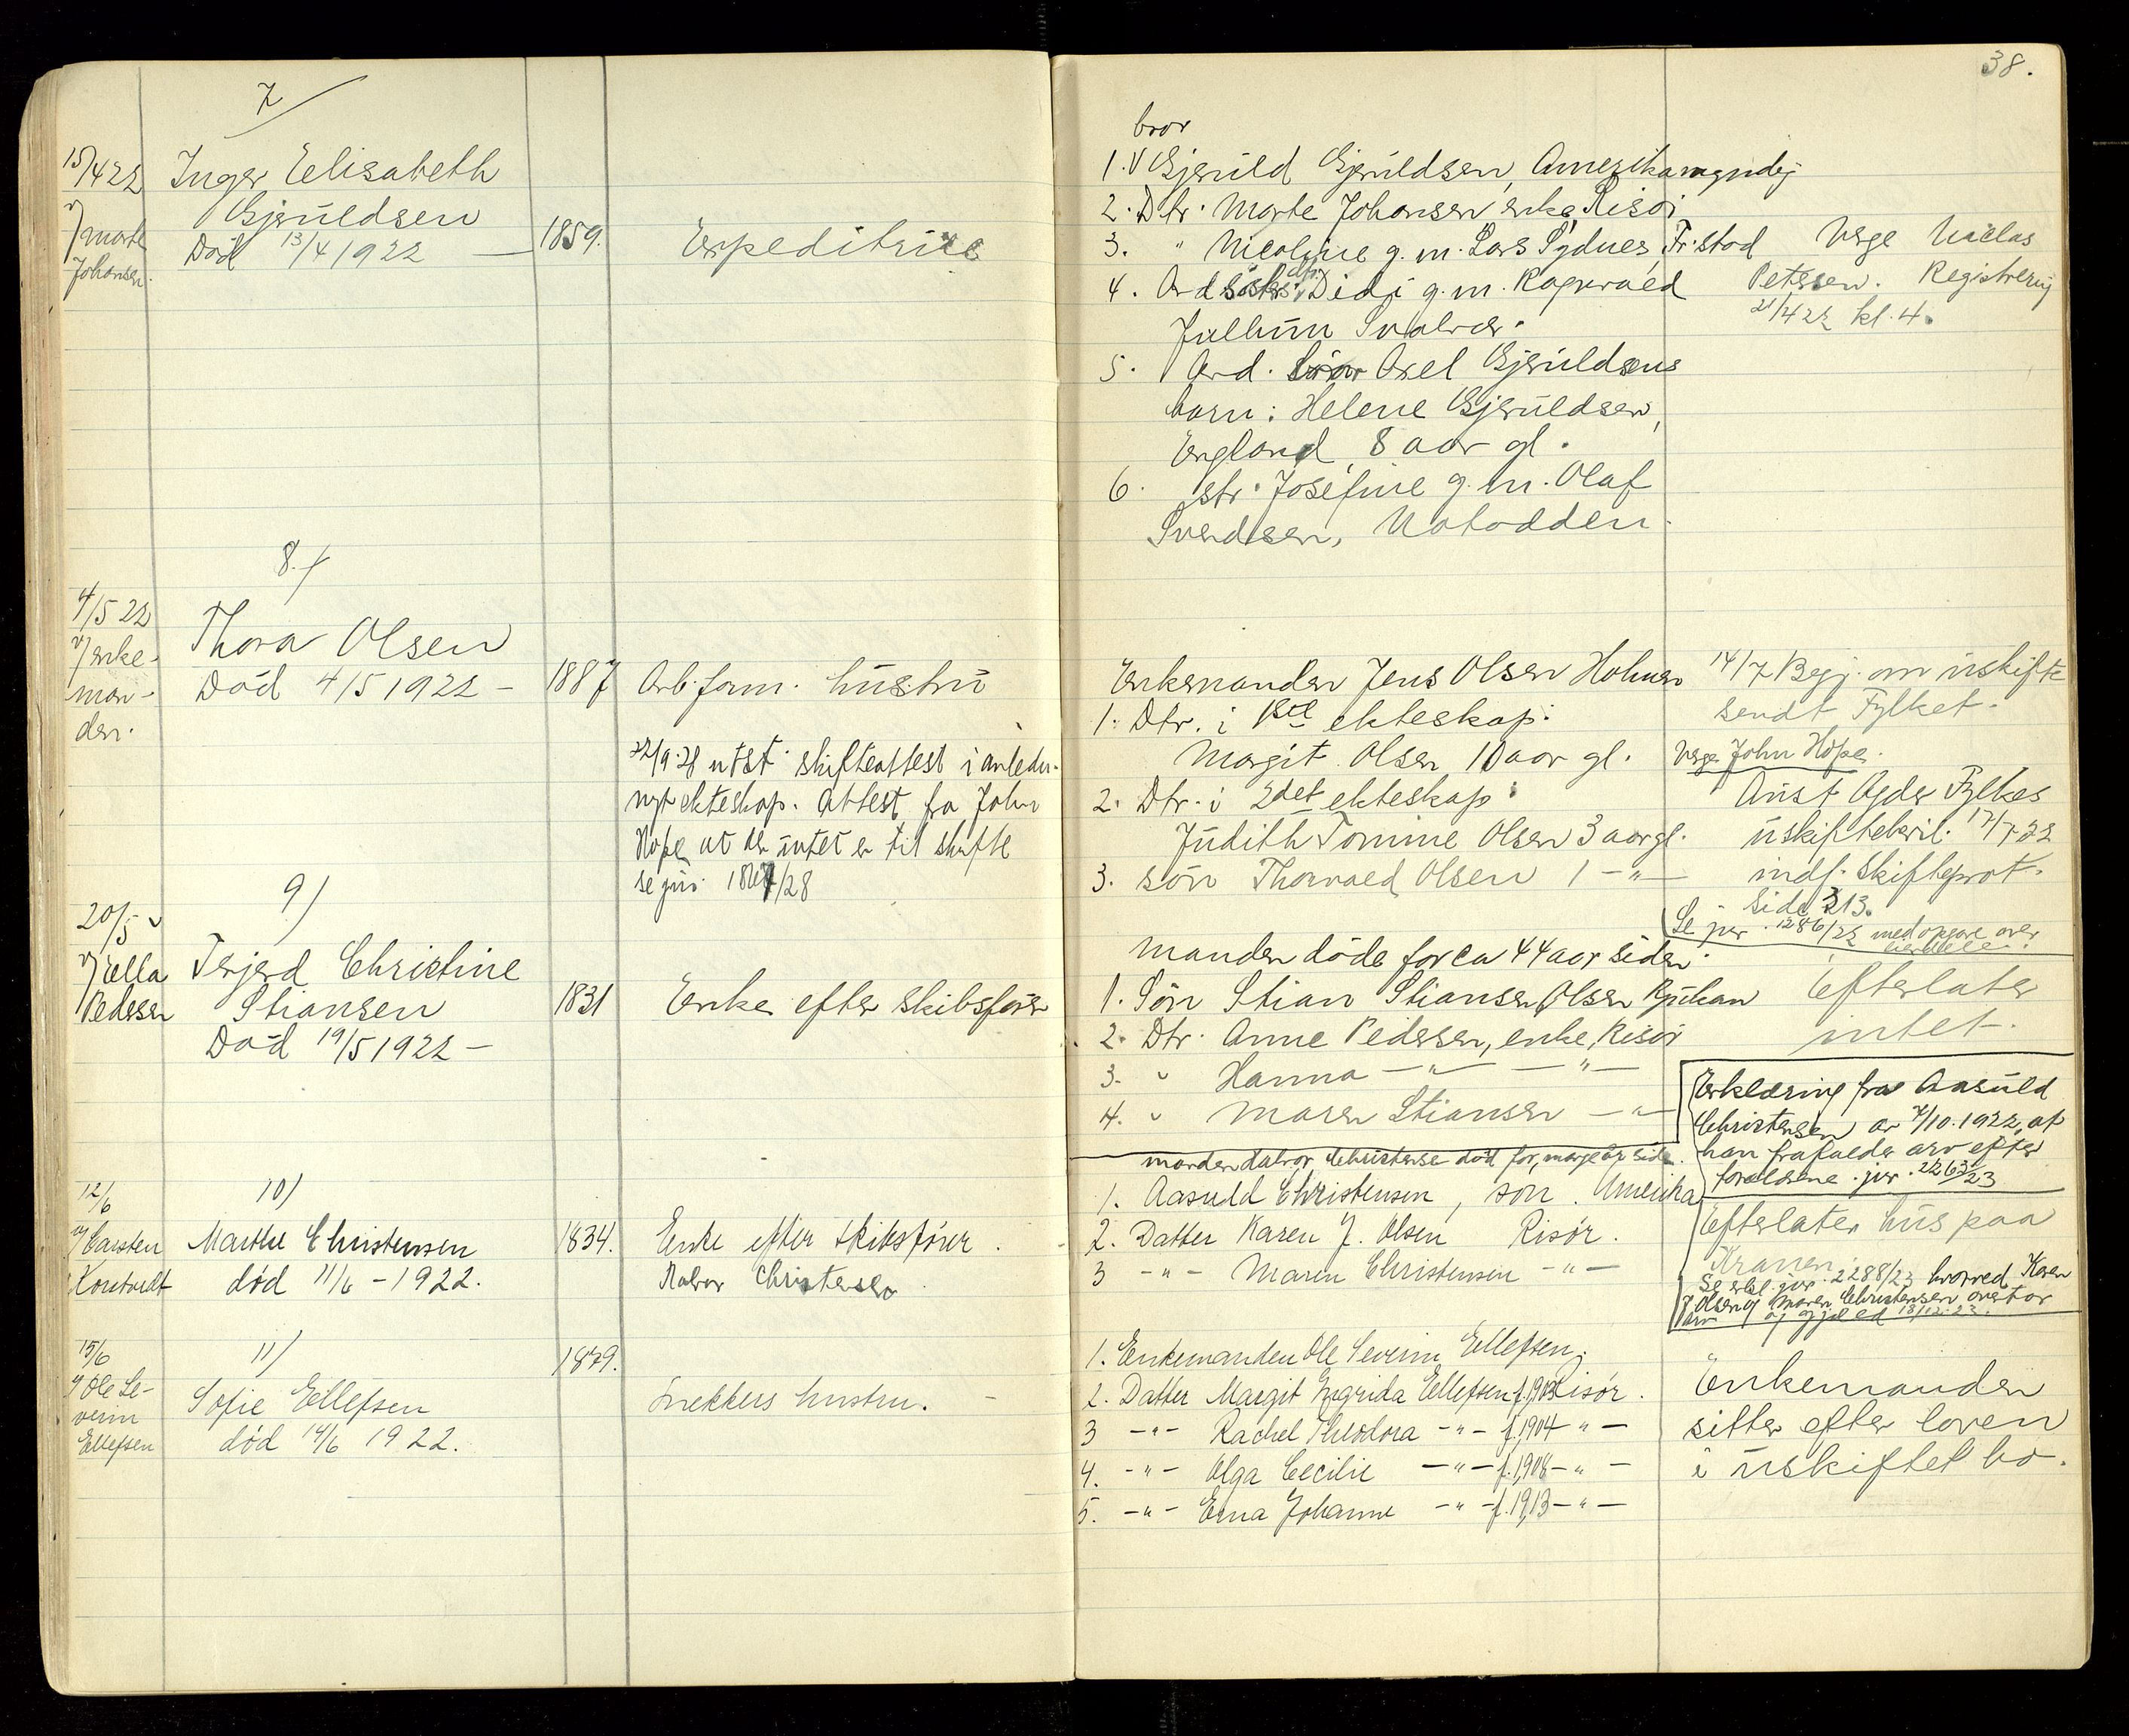 38.
7
15/4 22
v/ Marte
Johansen.
Inger Elisabeth
Gjeruldsen
Død 13/4 1922 —
1859.
Expeditrice
bror
1. Gjeruld Gjeruldsen, Amerika myndig
2. Dtr. Marte Johansen enke, Risør
3. " Nicoline g. m. Lars Sydnes, Fr.stad
4. Didi g. m. Ragnvald
Svolvær.
5. Avd. bror Axel Gjeruldsens
barn: Helene Gjeruldsen,
England, 8 aar gl.
6. str. Josefine g. m. Olaf
Svendsen, Notodden.
Verge Niclas
Petersen. Registrering
21/4 22 kl. 4.
8./
4/5 22
v/ enke-
man-
den.
Thora Olsen
Død 4/5 1922 —
1887
Arb.form. hustru
22/9.28 utst. skifteattest i anledn.
nyt ekteskap. Attest fra John
Hope at der intet er til skifte
se jur. /28
Enkemanden Jens Olsen Holmen
1. Dtr. i 1ste ekteskap:
Margit Olsen 10 aar gl.
2. Dtr. i 2det ekteskap:
Judith Tomine Olsen 3 aar gl.
3. søn Thorvald Olsen 1 — " —
14/7 Begj. om uskifte
sendt Fylket.
Verge John Hope.
Aust Agder Fylkes
uskiftebevil. 17/7-22
indf. Skifteprot.
side 313.
Se jur. 1286/22 med opgave over
9)
20/5 "
v/ Ella
Pedersen
Terjerd Christine
Stiansen
Død 19/5 1922 —
1831
Enke efter skibsfører
Manden døde for ca 44 aar siden.
1. Søn Stian Stiansen Olsen Rjukan
2. Dtr. Anne Pedersen, enke, Risør
3. " Hanna — " — — " —
4. " Maren Stiansen — " —
Efterlater
intet.
Erklæring fra Aasuld
Christensen av 7/10.1922, at
han frafalder arv efter
forældrene. jur. 2263/23
10)
12/6
v/ Carsten
Marthe Christensen
død 11/6 - 1922.
1834.
Enke efter skibsfører
Halvor Christensen
manden Halvor Christense død for mange år side.
1. Aasuld Christensen, søn. Amerika
2. Datter Karen J. Olsen Risør.
3 — " — Maren Christensen — " —
Efterlater hus paa
Kranen
Se erkl. jur. 2288/23 hvorved Karen
J Olsen og Maren Christensen overtar
arv og gjeld 18/12.23.
11)
15/6
v/ Ole Se-
verin
Ellefsen
Sofie Ellefsen
død 14/6 1922.
1879.
Snekkers hustru. —
1. Enkemanden Ole Severin Ellefsen.
2. Datter Margit Ingrida Ellefsen f. 1903 Risør.
3 — " — Rachel Theodora — " — f. 1904 — " —
4. — " — Olga Cecilie — " — f. 1908 — " —
5. — " — Erna Johanne — " — f. 1913 — " —
Enkemanden
sitter efter loven
i uskiftet bo.